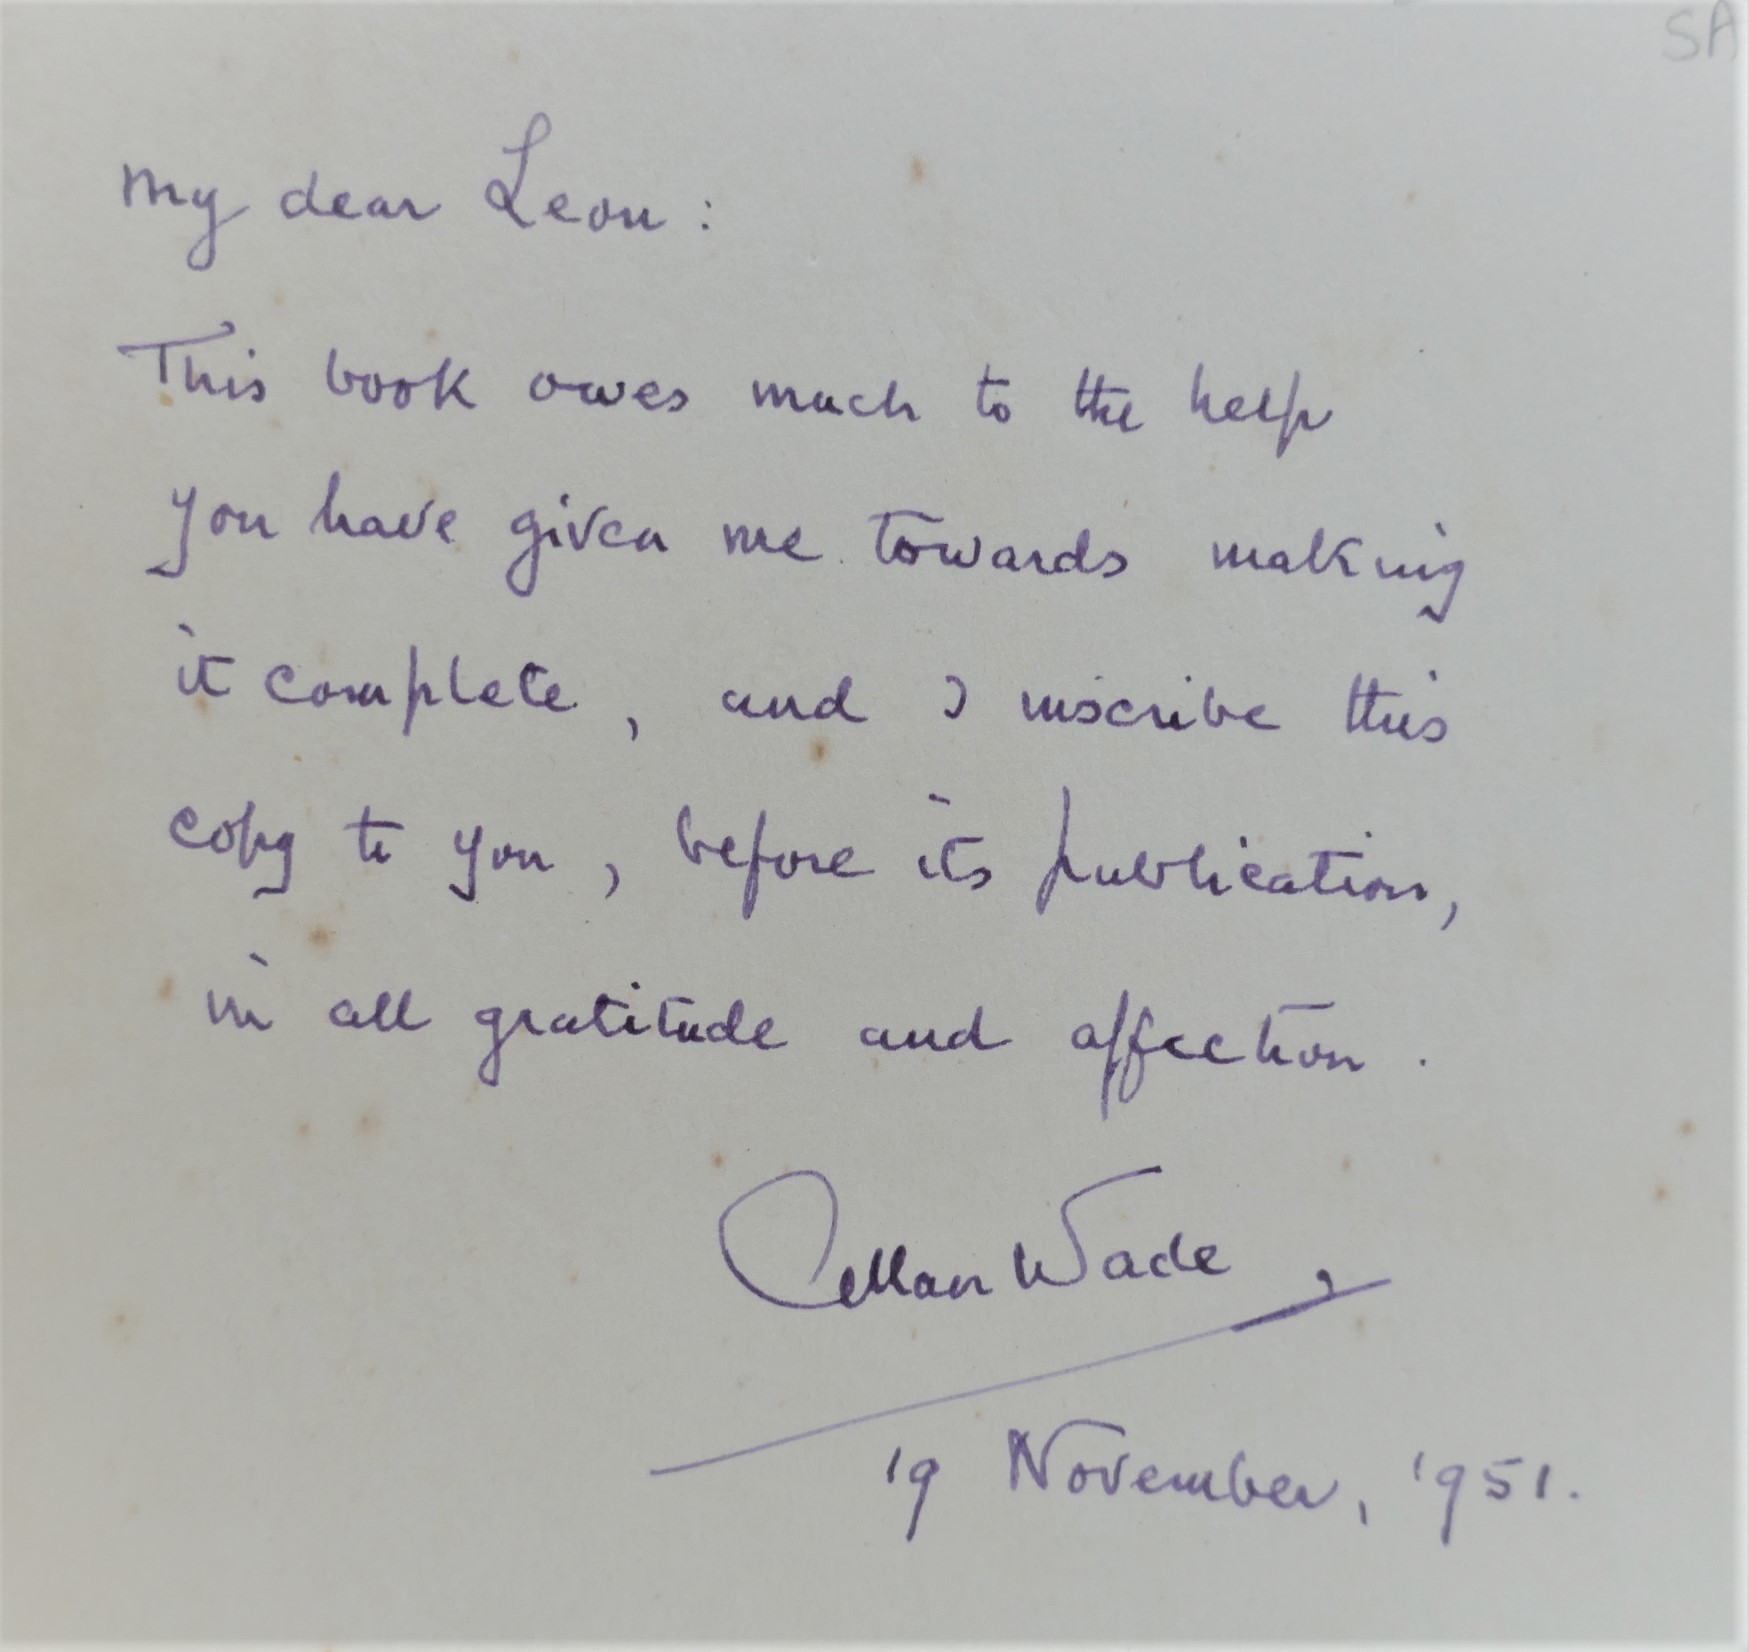 SA
My dear Leon:
This book owes much to the help
you have given me towards making
it complete, and I inscribe this
copy to you, before its publication,
in all gratitude and affection.
Allan Wade
19 November, 1951.